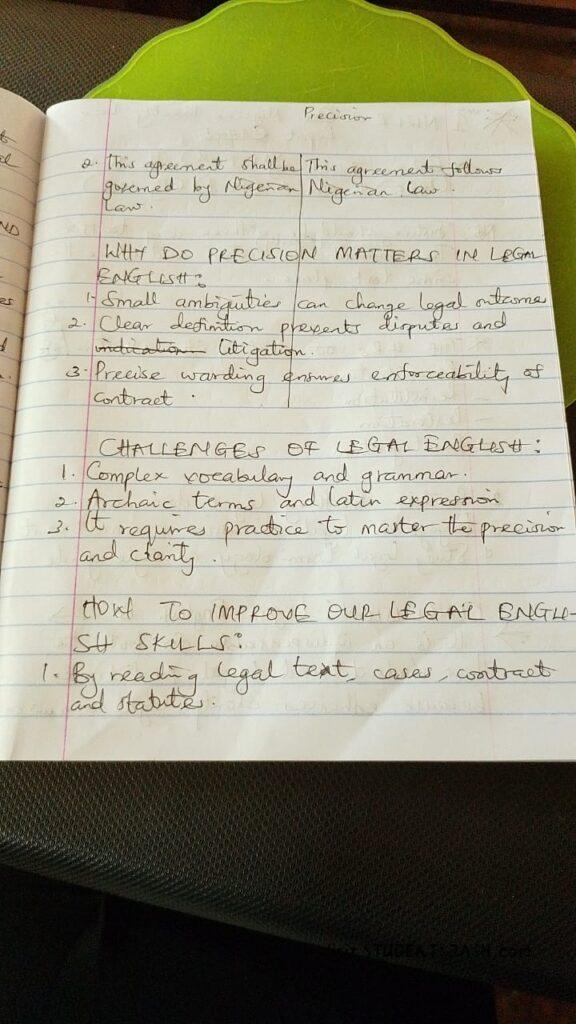 Precision
2. This agreement shall be | This agreement follows
governed by Nigerian | Nigerian Law.
Law.
WHY DO PRECISION MATTERS IN LEGAL
ENGLISH:
1. Small ambiguities can change legal outcomes
2. Clear definition prevents disputes and
indication litigation.
3. Precise warding ensures enforceability of
contract.
CHALLENGES OF LEGAL ENGLISH:
1. Complex vocabulary and grammar.
2. Archaic terms and latin expression
3. It requires practice to master the precision
and clarity.
HOW TO IMPROVE OUR LEGAL ENGLI-
SH SKILLS:
1. By reading legal text, cases, contract
and statutes.